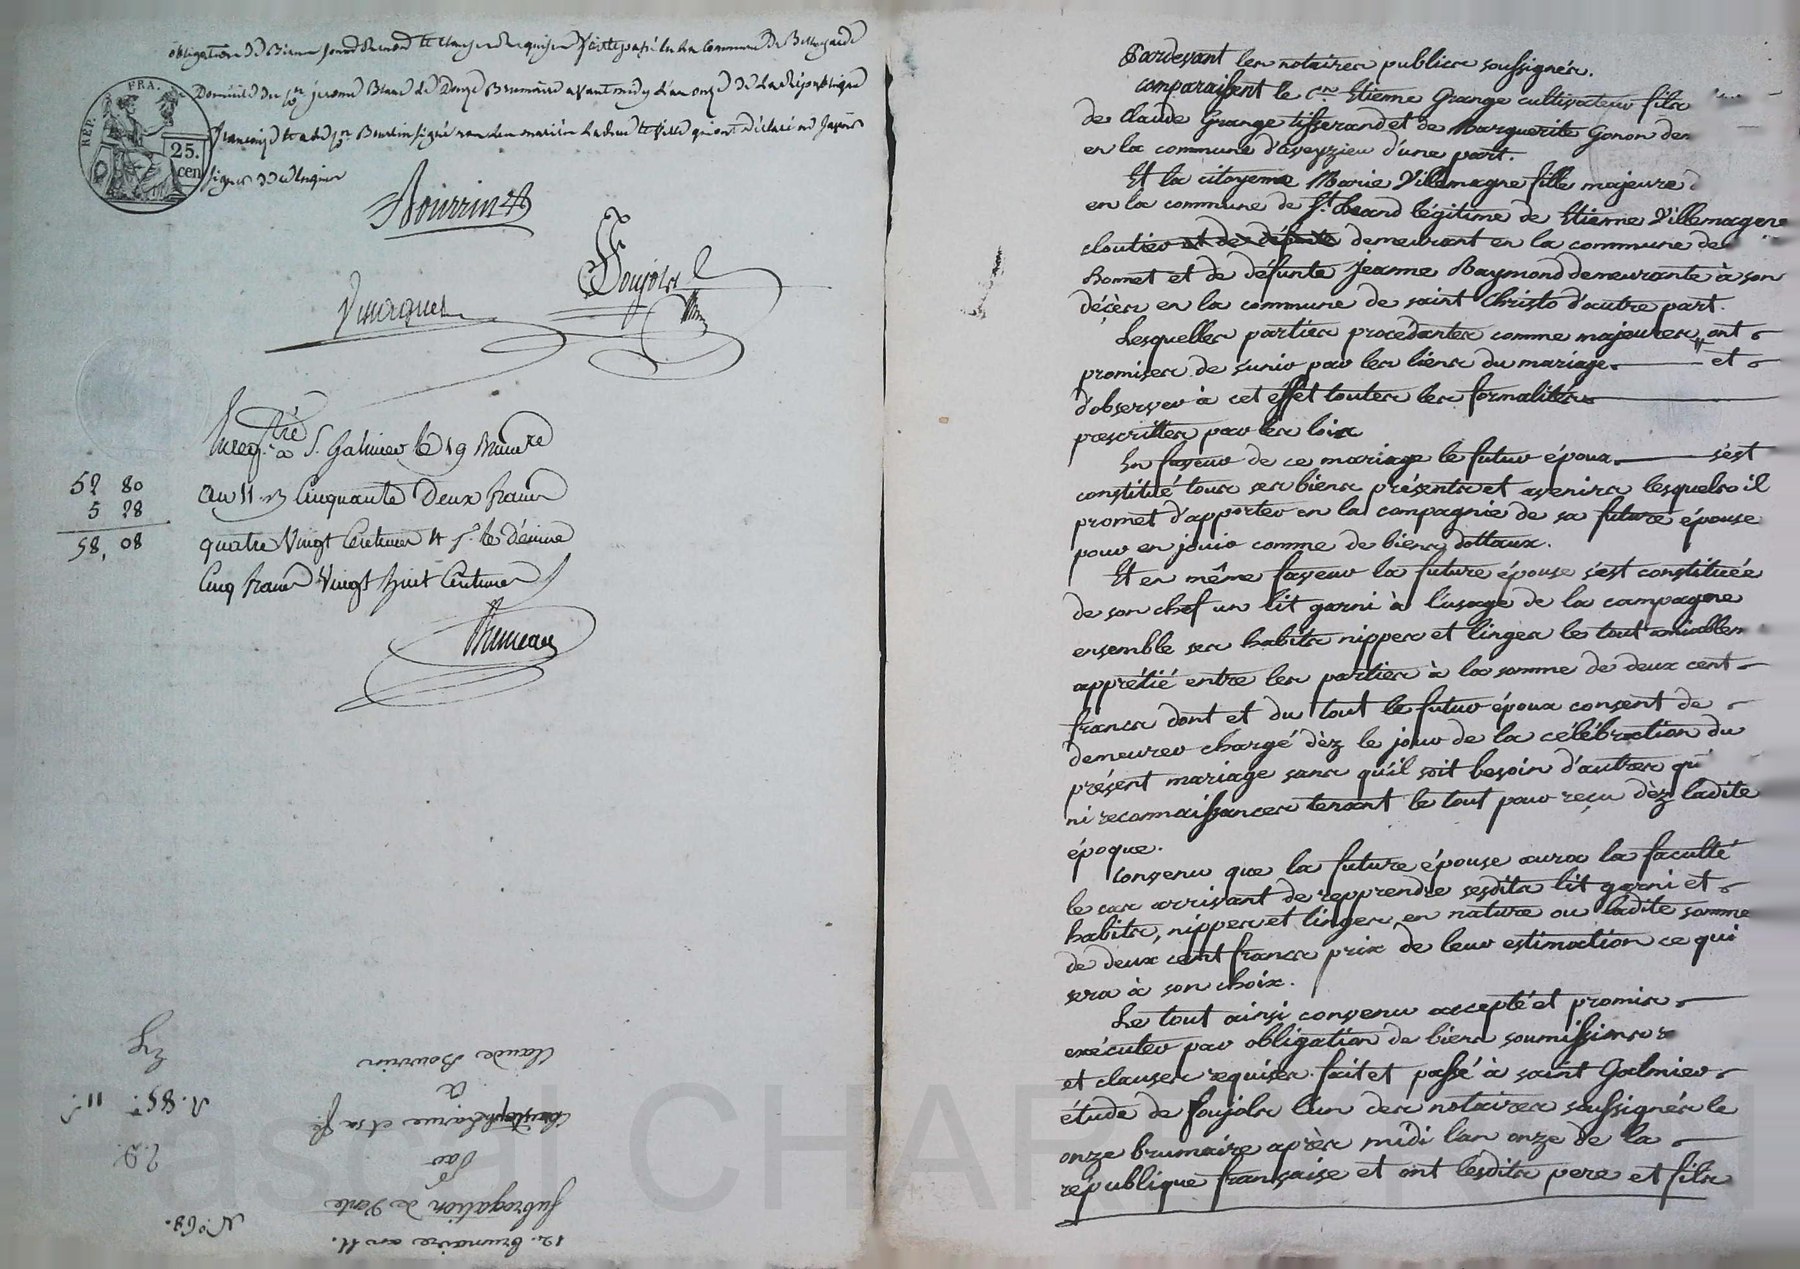 obligation de Biens soumissions et clauses requises fait et passé en la commune de Bellegarde
Domicile du jerome Blanc le Douze Brumaire avant midy l'an onze de la République
française et a led. Bourrin signé non les mariés Larue et fille qui ont déclaré ne savoir
signer de ce requis
REP. FRA.
25.
cen
Bourrin
Foujols
Enreg.tré à S. Galmier le 19 Brumre
52 80
an 11. R. Cinquante Deux francs
5 28
quatre Vingt Centimes et p.r le décime
58, 08
Cinq francs Vingt huit Centimes
Bruneau
12. brumaire an 11.
N.o 68.
Subrogation de Vente
Par
Larue et sa fe.
R. 85. 11 f.
a
Claude Bourrin
Pardevant les notaires publics soussignés.
comparaissent le c.en Etienne Grange cultivateur fils
de Claude Grange tisserand et de Marguerite Gonon dem
en la commune d'aveyzieu d'une part.
Et la citoyene Marie Villemagne fille majeure d
en la commune de St. heand légitime de Etienne Villemagne
cloutier et de défunte demeurant en la commune de
Bonnet et de défunte Jeanne Raymond demeurante à son
décès en la commune de saint Christo d'autre part.
Lesquelles parties procédantes comme majeures, ont
promises de s'unir par les liens du mariage et
d'observer à cet effet toutes les formalités
prescrittes par les loix
En faveur de ce mariage le futur époux s'est
constitué tous ses biens présents et avenirs lesquels il
promet d'apporter en la compagnie de sa future épouse
pour en jouir comme de biens dottaux.
Et en même faveur la future épouse s'est constituée
de son chef un lit garni à l'usage de la campagne
ensemble ses habits nippes et linges le tout amiablem
apprétié entre les parties à la somme de deux cent
francs dont et du tout le futur époux consent de
demeurer chargé dèz le jour de la célébration du
présent mariage sans qu'il soit besoin d'autres qu
ni reconnaissances tenant le tout pour reçu dèz ladite
époque.
Convenu que la future épouse aura la faculté
le cas arrivant de repprendre sesdits lit garni et
habits, nippes et linges, en nature ou ladite somme
de deux cent francs prix de leur estimation ce qui
sera à son choix.
Le tout ainsi convenu accepté et promis
exécuter par obligation de biens soumissions
et clauses requises. fait et passé à saint Galmier
étude de foujols l'un des notaires soussignés le
onze brumaire après midi l'an onze de la
république française et ont lesdits pere et fils
Pascal CHAREYRON